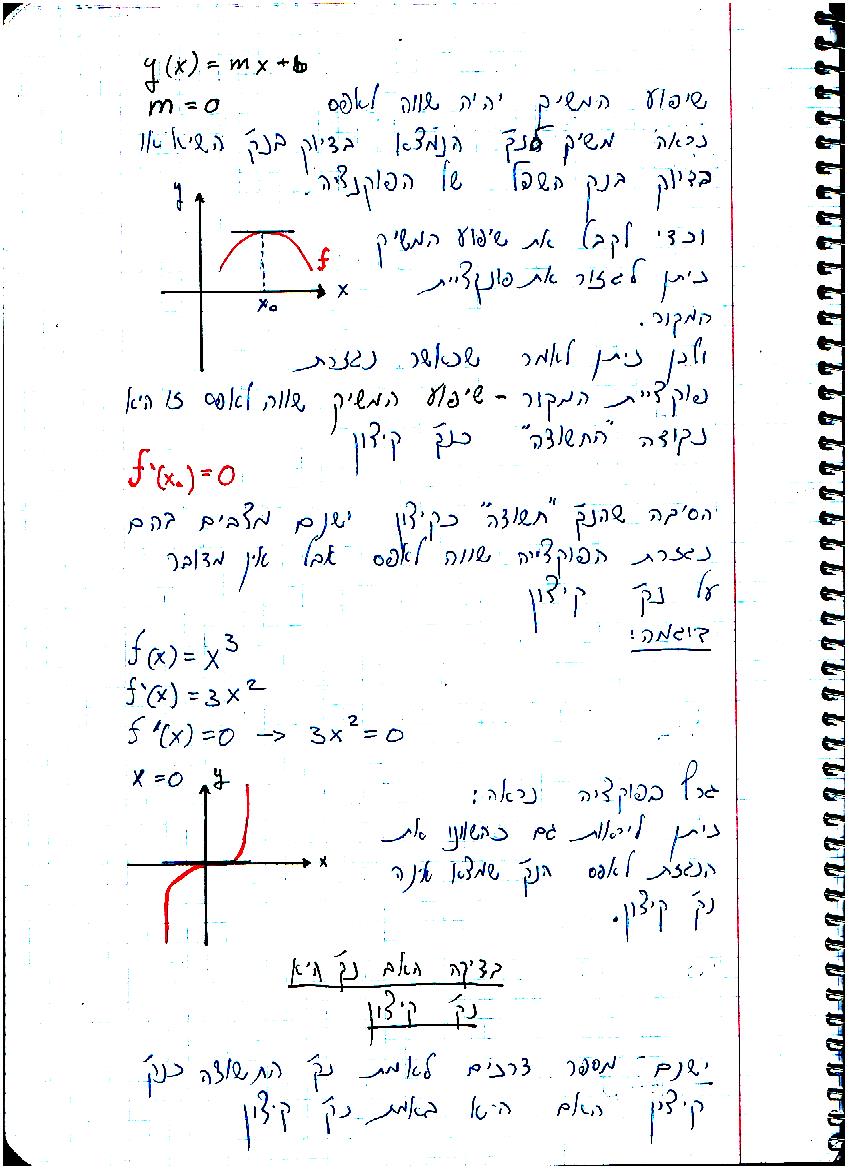 y(x) = mx + b
m = 0 שיפוע המשיק יהיה שווה לאפס
נראה משיק לנק' הנמצא בדיוק בנק' השיא או
בדיוק בנק' השפל של הפוקנציה.
y
וכדי לקבל את שיפוע המשיק
f
ניתן לגזור את פונקציית
x
x₀
המקור.
ולכן ניתן לאמר שכאשר נגזרת
פוקציית המקור - שיפוע המשיק שווה לאפס זו היא
נקודה "החשודה" כנק' קיצון
f'(x₀) = 0
הסיבה שהנק' "חשודה" כקיצון ישנם מצבים בהם
נגזרת הפוקצייה שווה לאפס אבל אין מדובר
על נק' קיצון
דוגמה:
f(x) = x³
f'(x) = 3x²
f'(x) = 0 → 3x² = 0
x = 0
y
גרף הפוקציה נראה:
ניתן ליראות גם כהשוונו את
x
הנגזת לאפס הנק' שמצאו אינה
נק' קיצון.
בדיקה האם נק' היא
נק' קיצון
ישנם מספר דרכים לאמת נק' החשודה כנק'
קיצון האם היא באמת נק' קיצון